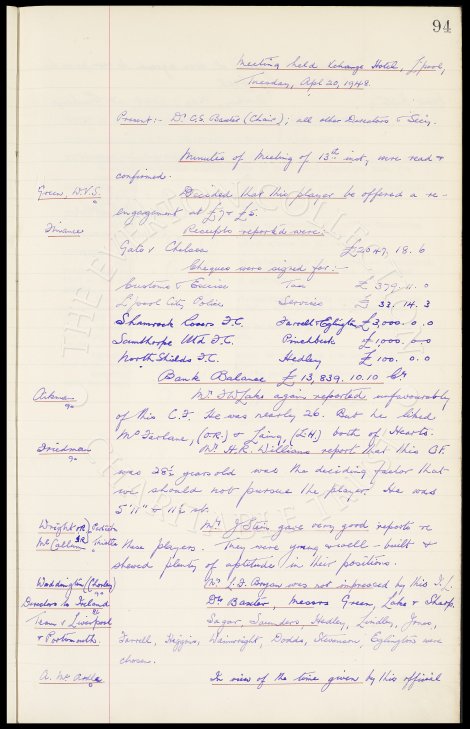 94
Meeting held Xchange Hotel, L'pool,
Tuesday, Apl 20, 1948.
Present:- Dr C.S. Baxter (Chair); all other Directors & Secy.
Minutes of Meeting of 13th inst, were read &
confirmed.
Green, D.V.S. Decided that this player be offered a re-
engagement at £7 & £5.
Finance Receipts reported were:-
Gate v Chelsea £2047. 18. 6
Cheques were signed for:-
Customs & Excise Tax £ 379. 11. 0
L'pool City Police Services £ 33. 14. 3
Shamrock Rovers F.C. Farrell & Eglington £3,000. 0. 0
Scunthorpe Utd F.C. Pinchbeck £1000. 0. 0
North Shields F.C. Hedley £ 100. 0. 0
Bank Balance £ 13,839. 10. 10 Cr.
Mr Lake again reported unfavourably
of this C.F. He was nearly 26. But he liked
McFarlane, (O.R.) & Laing, (L.H.) both of Hearts.
Mr H.R. Williams report that this CF.
was 28½ years old was the deciding factor that
we should not pursue the player. He was
5'11" & 11½ st.
Wright OR Mr J Sein gave very good reports re
McCallum I.R. these players. They were young & well-built &
shewed plenty of aptitude in their positions.
Waddington (Chorley) Mr was not impressed by this
Directors to Ireland Dr Baxter, Messrs Green, Lake & Sharp.
Team v Liverpool Sagar, Saunders, Hedley, Lindley, Jones,
& Portsmouth. Farrell, Higgins, Wainwright, Dodds, Stevenson, Eglington were
chosen.
A. Mc In view of the time given by this official